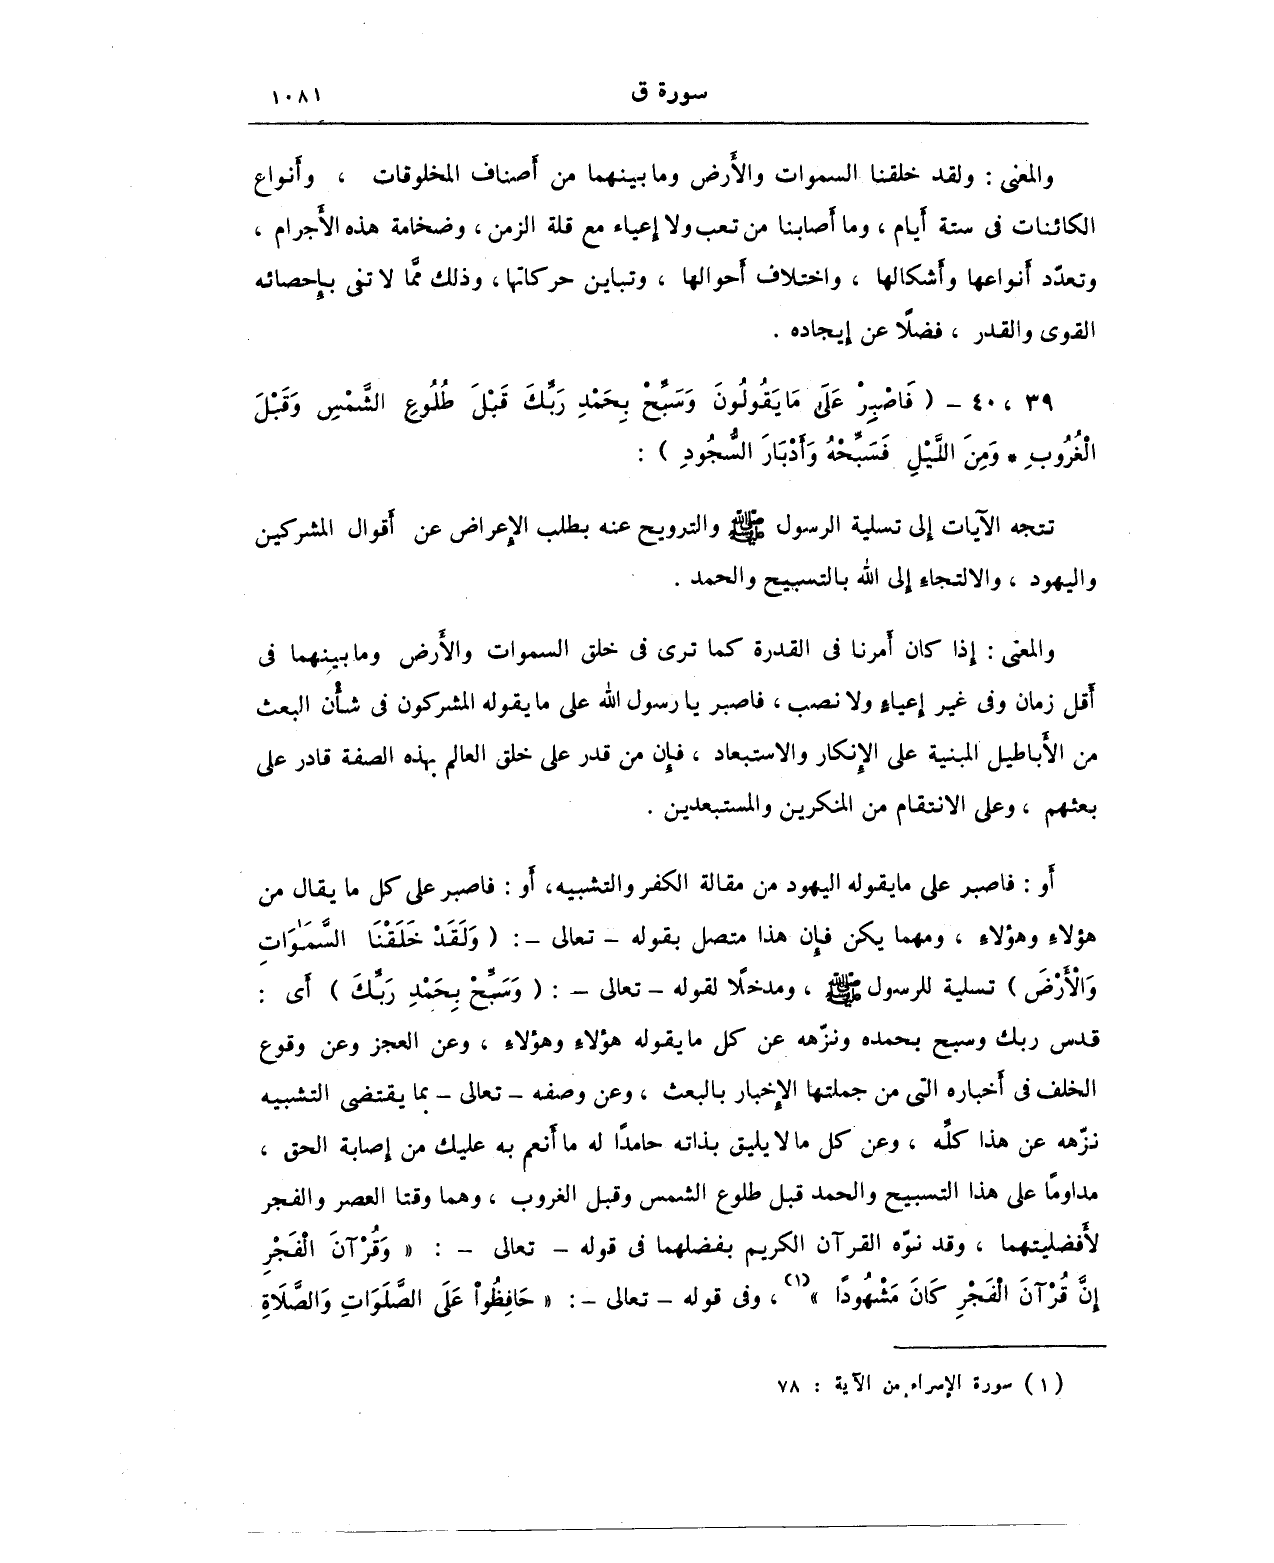 سورة ق
١٠٨١
والمعنى : ولقد خلقنا السموات والأرض وما بينهما من أصناف المخلوقات ، وأنواع
الكائنات فى ستة أيام ، وما أصابنا من تعب ولا إعياء مع قلة الزمن ، وضخامة هذه الأجرام ،
وتعدّد أنواعها وأشكالها ، واختلاف أحوالها ، وتباين حركاتها ، وذلك ممَّا لا تفى بإحصائه
القوى والقدر ، فضلًا عن إيجاده .
٣٩ ، ٤٠ - ( فَاصْبِرْ عَلَىٰ مَا يَقُولُونَ وَسَبِّحْ بِحَمْدِ رَبِّكَ قَبْلَ طُلُوعِ الشَّمْسِ وَقَبْلَ
الْغُرُوبِ * وَمِنَ اللَّيْلِ فَسَبِّحْهُ وَأَدْبَارَ السُّجُودِ ) :
تتجه الآيات إلى تسلية الرسول ﷺ والترويح عنه بطلب الإعراض عن أقوال المشركين
واليهود ، والالتجاء إلى الله بالتسبيح والحمد .
والمعنى : إذا كان أمرنا فى القدرة كما ترى فى خلق السموات والأرض وما بينهما فى
أقل زمان وفى غير إعياءٍ ولا نصب ، فاصبر يا رسول الله على ما يقوله المشركون فى شأن البعث
من الأباطيل المبنية على الإنكار والاستبعاد ، فإن من قدر على خلق العالم بهذه الصفة قادر على
بعثهم ، وعلى الانتقام من المنكرين والمستبعدين .
أو : فاصبر على مايقوله اليهود من مقالة الكفر والتشبيه، أو : فاصبر على كل ما يقال من
هؤلاء وهؤلاء ، ومهما يكن فإن هذا متصل بقوله - تعالى - : ( وَلَقَدْ خَلَقْنَا السَّمَٰوَاتِ
وَالْأَرْضَ ) تسلية للرسول ﷺ ، ومدخلًا لقوله - تعالى - : ( وَسَبِّحْ بِحَمْدِ رَبِّكَ ) أى :
قدس ربك وسبح بحمده ونزّهه عن كل ما يقوله هؤلاء وهؤلاء ، وعن العجز وعن وقوع
الخلف فى أخباره التى من جملتها الإخبار بالبعث ، وعن وصفه - تعالى - بما يقتضى التشبيه
نزّهه عن هذا كلِّه ، وعن كل ما لا يليق بذاته حامدًا له ما أنعم به عليك من إصابة الحق ،
مداومًا على هذا التسبيح والحمد قبل طلوع الشمس وقبل الغروب ، وهما وقتا العصر والفجر
لأفضليتهما ، وقد نوّه القرآن الكريم بفضلهما فى قوله - تعالى - : « وَقُرْآنَ الْفَجْرِ
إِنَّ قُرْآنَ الْفَجْرِ كَانَ مَشْهُودًا »(١) ، وفى قوله - تعالى - : « حَافِظُواْ عَلَى الصَّلَوَاتِ وَالصَّلَاةِ
(١) سورة الإسراء من الآية : ٧٨